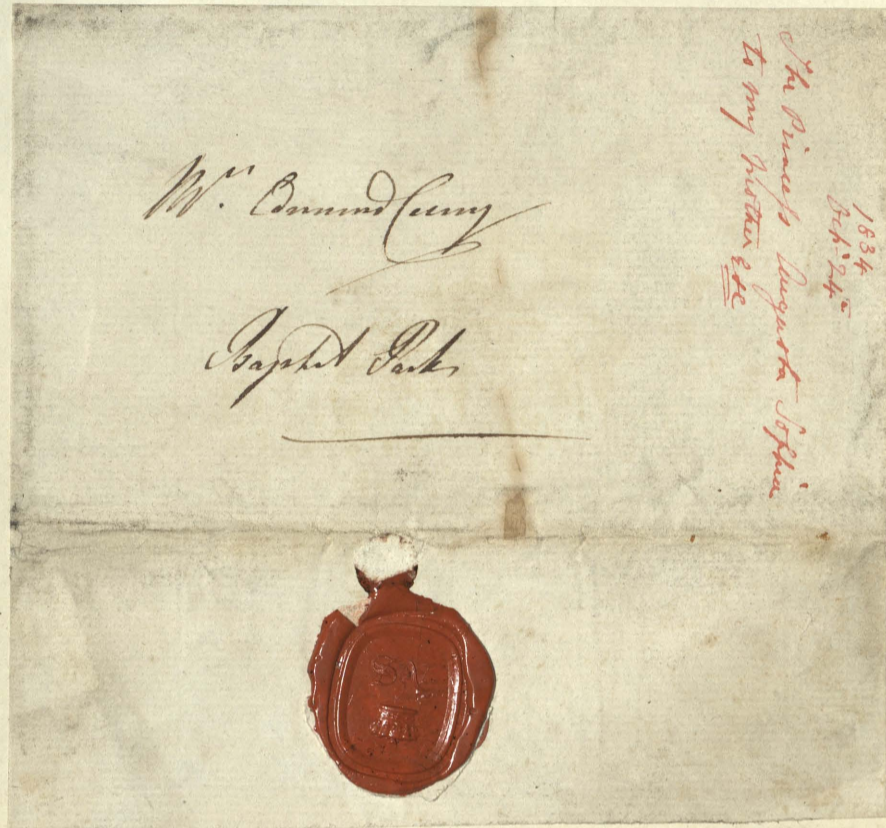 Mrs. Edmund Currey
Bagshot Park
1834
Oct. 24th
The Princess Augusta Sophia
to my Mother E &c